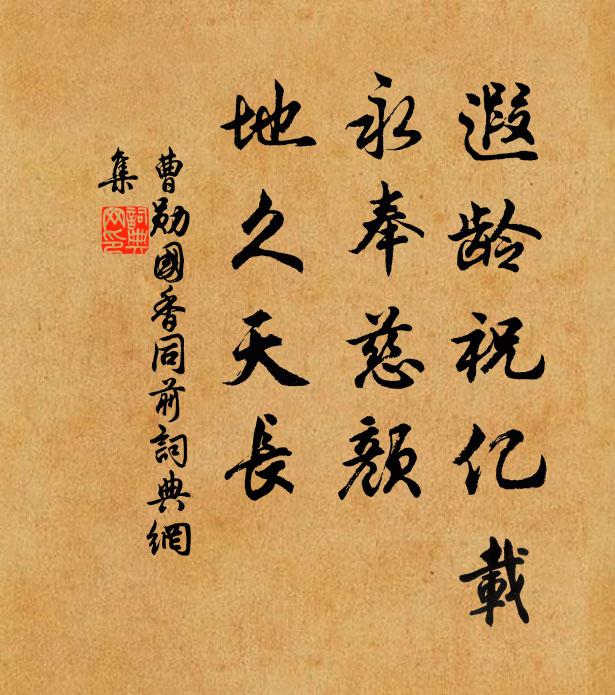 遐龄祝亿載
永奉慈顔
地久天長
曹勛國香同前詞典網
集
詞典網印